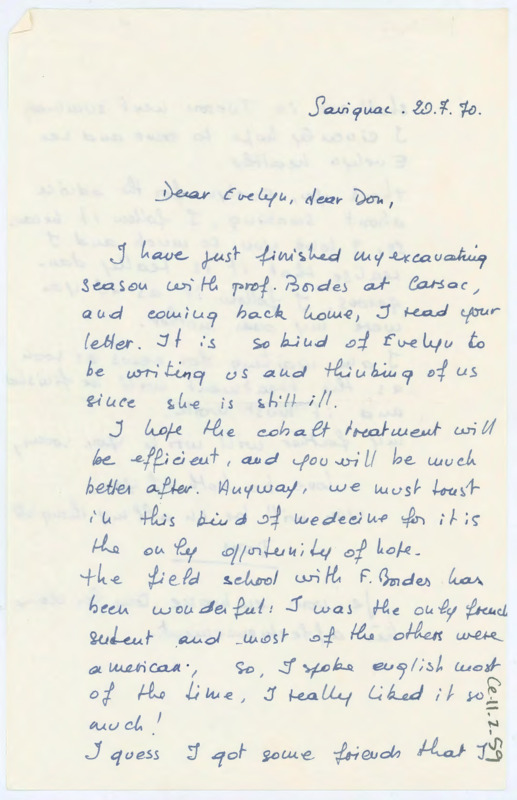 Savignac. 20.7.70.
Dear Evelyn, dear Don,
I have just finished my excavating
season with prof. Bordes at Carsac,
and coming back home, I read your
letter. It is so kind of Evelyn to
be writing us and thinking of us
since she is still ill.
I hope the cobalt treatment will
be efficient, and you will be much
better after. Anyway, we must trust
in this kind of medecine for it is
the only opportunity of hope.
the field school with F. Bordes has
been wonderful: I was the only french
student and most of the others were
american, so, I spoke english most
of the time, I really liked it so
much!
I guess I got some friends that I
Ce-11-2-59